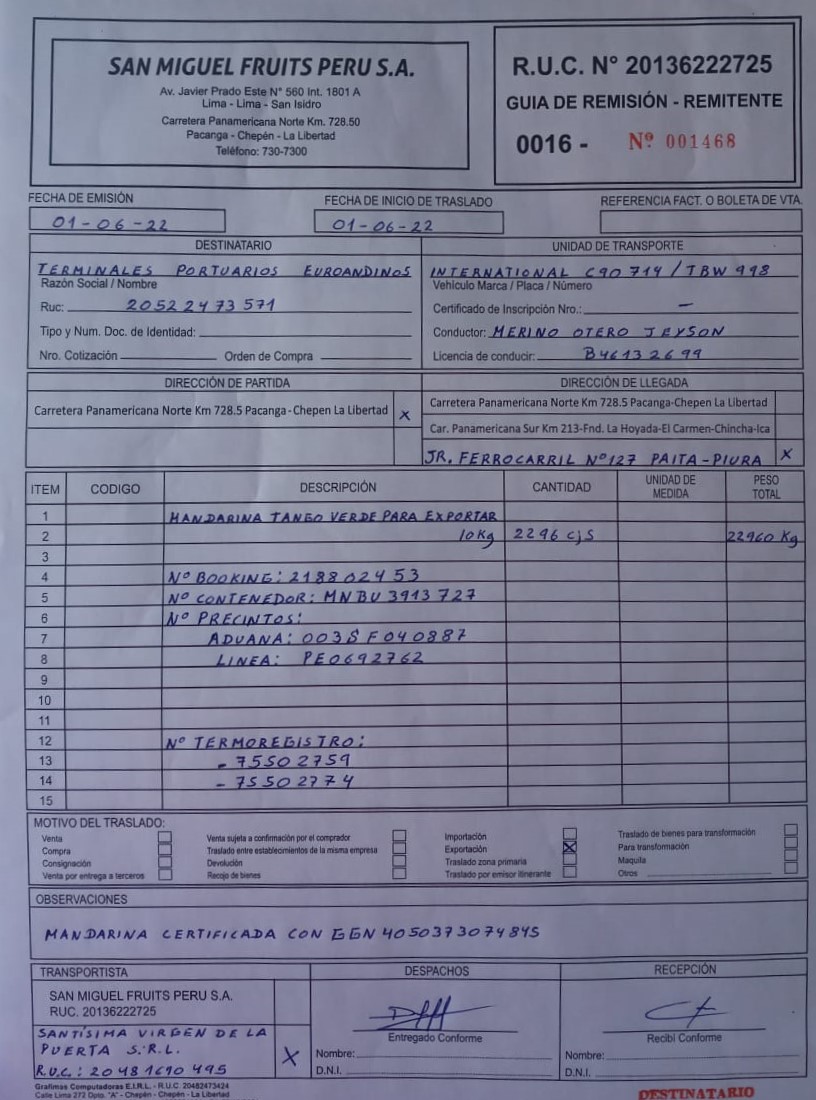 SAN MIGUEL FRUITS PERU S.A.
Av. Javier Prado Este N° 560 Int. 1801 A
Lima - Lima - San Isidro
Carretera Panamericana Norte Km. 728.50
Pacanga - Chepén - La Libertad
Teléfono: 730-7300
R.U.C. N° 20136222725
GUIA DE REMISIÓN - REMITENTE
0016 - Nº 001468
FECHA DE EMISIÓN
01-06-22
FECHA DE INICIO DE TRASLADO
01-06-22
REFERENCIA FACT. O BOLETA DE VTA.
DESTINATARIO
TERMINALES PORTUARIOS EUROANDINOS
Razón Social / Nombre
Ruc: 20522473571
Tipo y Num. Doc. de Identidad:
Nro. Cotización Orden de Compra
UNIDAD DE TRANSPORTE
INTERNATIONAL C90 714 / TBW 998
Vehículo Marca / Placa / Número
Certificado de Inscripción Nro.: —
Conductor: MERINO OTERO JEYSON
Licencia de conducir: B46132699
DIRECCIÓN DE PARTIDA
Carretera Panamericana Norte Km 728.5 Pacanga-Chepen La Libertad X
DIRECCIÓN DE LLEGADA
Carretera Panamericana Norte Km 728.5 Pacanga-Chepen La Libertad
Car. Panamericana Sur Km 213-Fnd. La Hoyada-El Carmen-Chincha-Ica
JR. FERROCARRIL N°127 PAITA-PIURA X
ITEM CODIGO DESCRIPCIÓN CANTIDAD UNIDAD DE MEDIDA PESO TOTAL
1 MANDARINA TANGO VERDE PARA EXPORTAR
2 10Kg 2296 cjs 22960 Kg
3
4 N° BOOKING: 218802453
5 N° CONTENEDOR: MNBU 3913727
6 N° PRECINTOS:
7 ADUANA: 003SF040887
8 LINEA: PE0692762
9
10
11
12 N° TERMOREGISTRO:
13 - 75502759
14 - 75502774
15
MOTIVO DEL TRASLADO:
Venta
Compra
Consignación
Venta por entrega a terceros
Venta sujeta a confirmación por el comprador
Traslado entre establecimientos de la misma empresa
Devolución
Recojo de bienes
Importación
Exportación X
Traslado zona primaria
Traslado por emisor itinerante
Traslado de bienes para transformación
Para transformación
Maquila
Otros
OBSERVACIONES
MANDARINA CERTIFICADA CON GGN 4050373074845
TRANSPORTISTA
SAN MIGUEL FRUITS PERU S.A.
RUC. 20136222725
SANTÍSIMA VIRGEN DE LA
PUERTA S.R.L.
R.U.C.: 20481690495 X
DESPACHOS
Entregado Conforme
Nombre:
D.N.I.
RECEPCIÓN
Recibi Conforme
Nombre:
D.N.I.
Grafimas Computadoras E.I.R.L. - R.U.C. 20482473424
Calle Lima 272 Dpto. "A" - Chepén - Chepén - La Libertad
DESTINATARIO